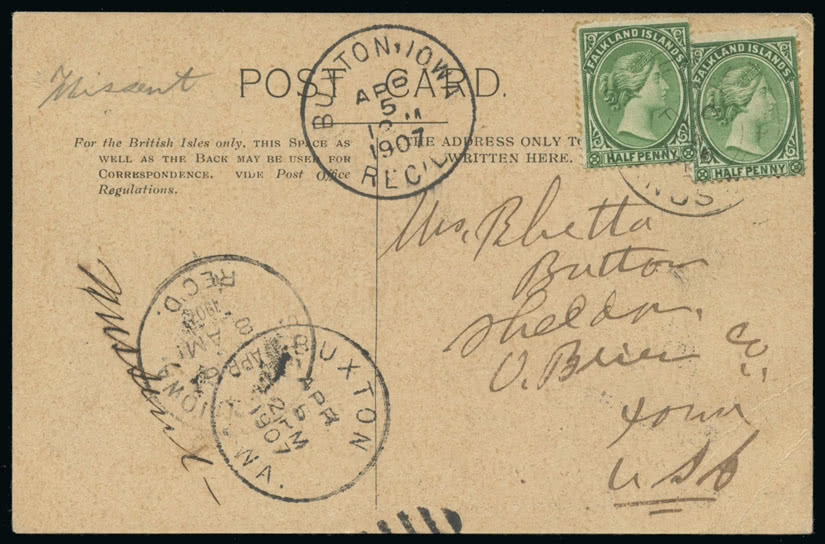 Missent
POST CARD.
For the British Isles only, THIS SPACE AS
WELL AS THE BACK MAY BE USED FOR
CORRESPONDENCE. VIDE Post Office
Regulations.
THE ADDRESS ONLY TO
WRITTEN HERE.
BUXTON, IOWA
APR
5
1907
REC'D
FALKLAND ISLANDS
HALF PENNY
FALKLAND ISLANDS
HALF PENNY
Mrs. Rhetta
Button
Sheldon,
O. Brien Co.
Iowa
USA
REC'D.
8
AM
APR
IOWA
BUXTON
APR
5
2 PM
1907
WA.